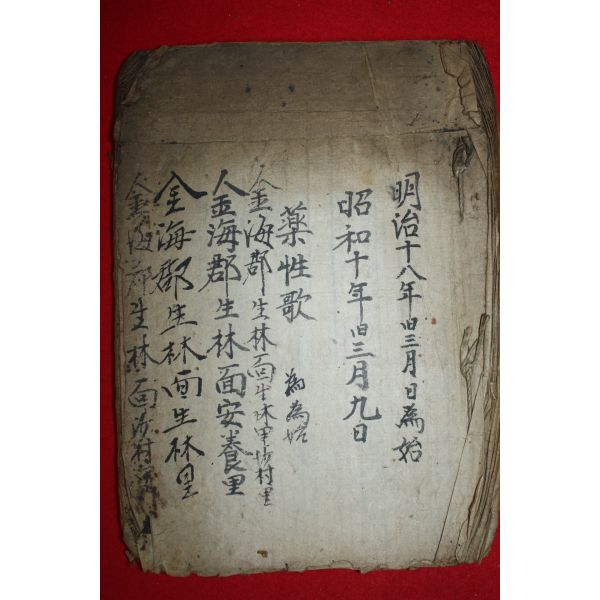 明治十八年旧三月日為始
昭和十年旧三月九日
薬性歌 為為始
金海郡生林面生林里村里
金海郡生林面安養里
金海郡生林面生林里
金海郡生林面沙村里